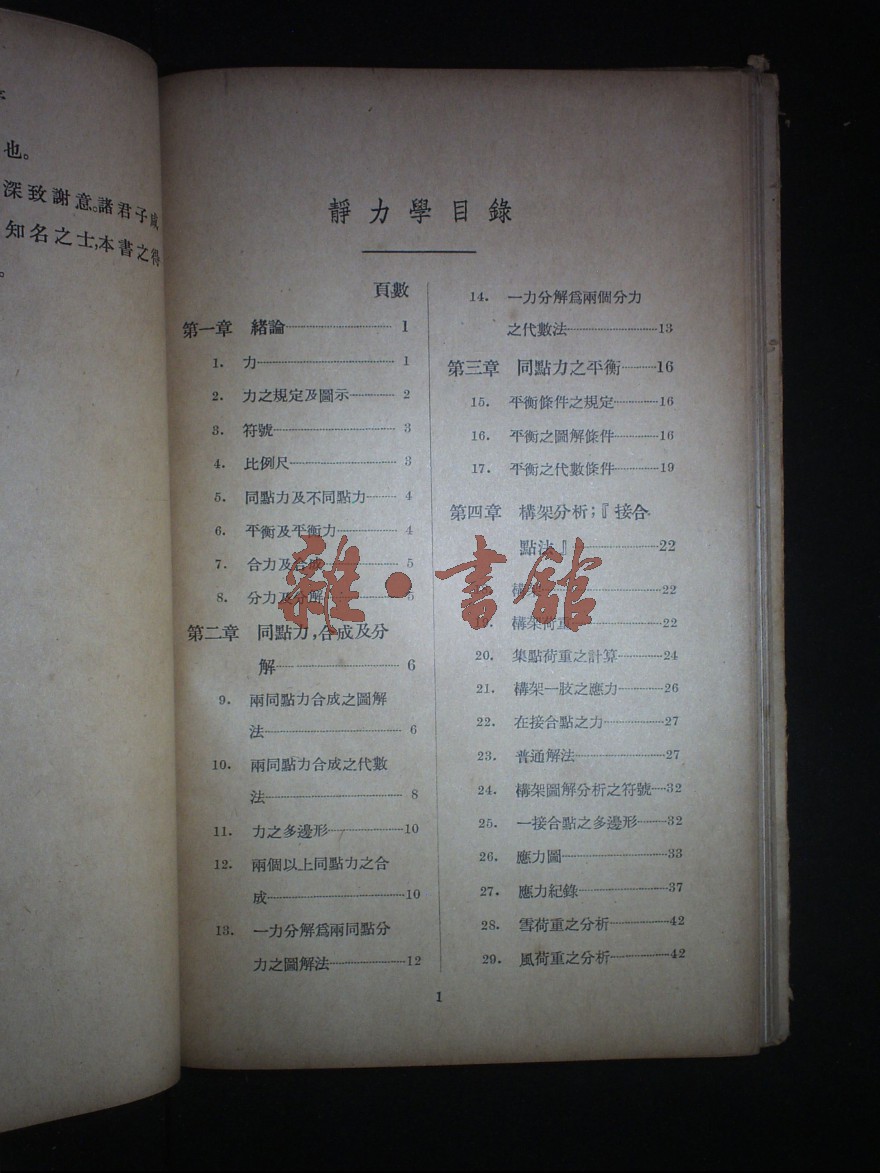 也。
深致謝意。諸君子咸
知名之士,本書之得
。
靜力學目錄
頁數
第一章 緒論 1
1. 力 1
2. 力之規定及圖示 2
3. 符號 3
4. 比例尺 3
5. 同點力及不同點力 4
6. 平衡及平衡力 4
7. 合力及合成 5
8. 分力及分解 5
第二章 同點力,合成及分
解 6
9. 兩同點力合成之圖解
法 6
10. 兩同點力合成之代數
法 8
11. 力之多邊形 10
12. 兩個以上同點力之合
成 10
13. 一力分解爲兩同點分
力之圖解法 12
14. 一力分解爲兩個分力
之代數法 13
第三章 同點力之平衡 16
15. 平衡條件之規定 16
16. 平衡之圖解條件 16
17. 平衡之代數條件 19
第四章 構架分析;『接合
點法』 22
構架 22
19. 構架荷重 22
20. 集點荷重之計算 24
21. 構架一肢之應力 26
22. 在接合點之力 27
23. 普通解法 27
24. 構架圖解分析之符號 32
25. 一接合點之多邊形 32
26. 應力圖 33
27. 應力紀錄 37
28. 雪荷重之分析 42
29. 風荷重之分析 42
1
雜·書館